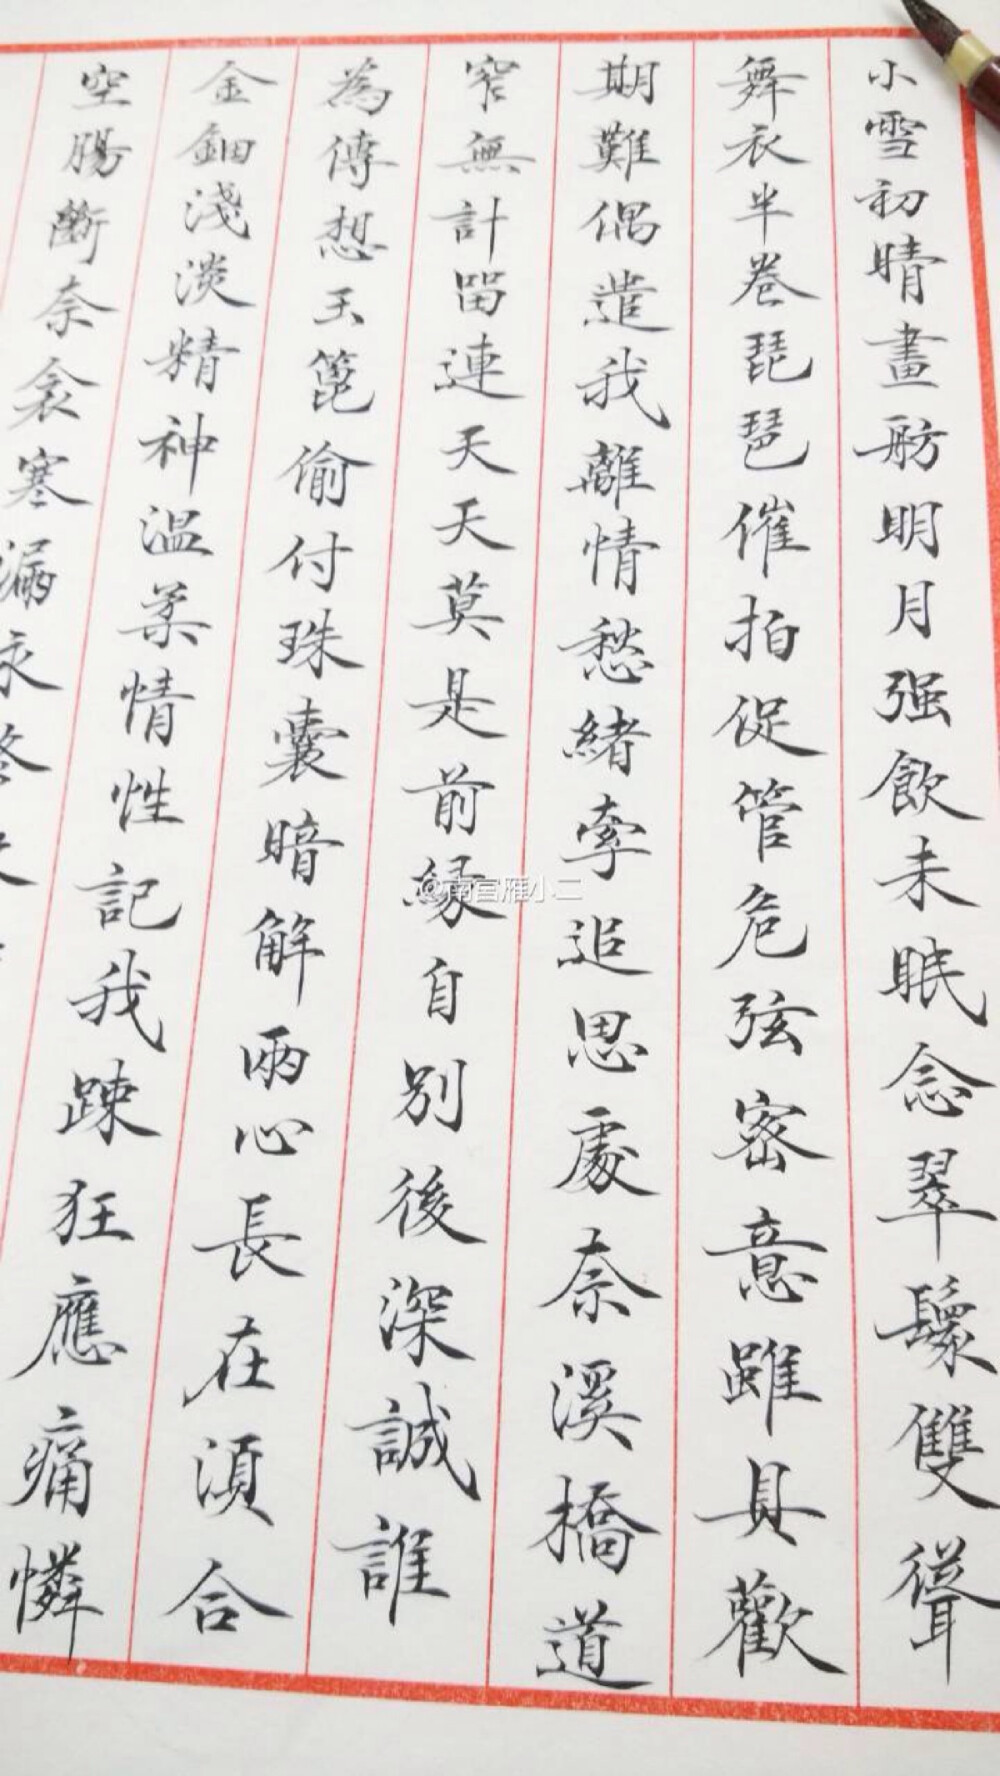 小雪初晴畫舫明月强飲未眠念翠鬟雙聳
舞衣半卷琵琶催拍促管危弦密意雖具歡
期難偶遣我離情愁緒牽追思處奈溪橋道
窄無計留連天天莫是前緣自別後深誠誰
為傳想玉篦偷付珠囊暗解兩心長在須合
金鈿淺淡精神溫柔情性記我踈狂應痛憐
空腸斷奈衾寒漏永終
@南宫雁小二